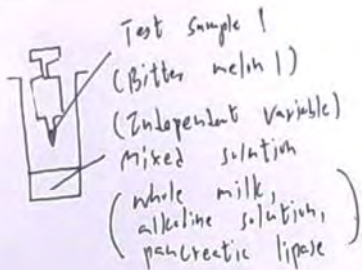 Test Sample 1
(Bitter melon 1)
(Independent Variable)
Mixed solution
(whole milk,
alkaline solution,
pancreatic lipase)